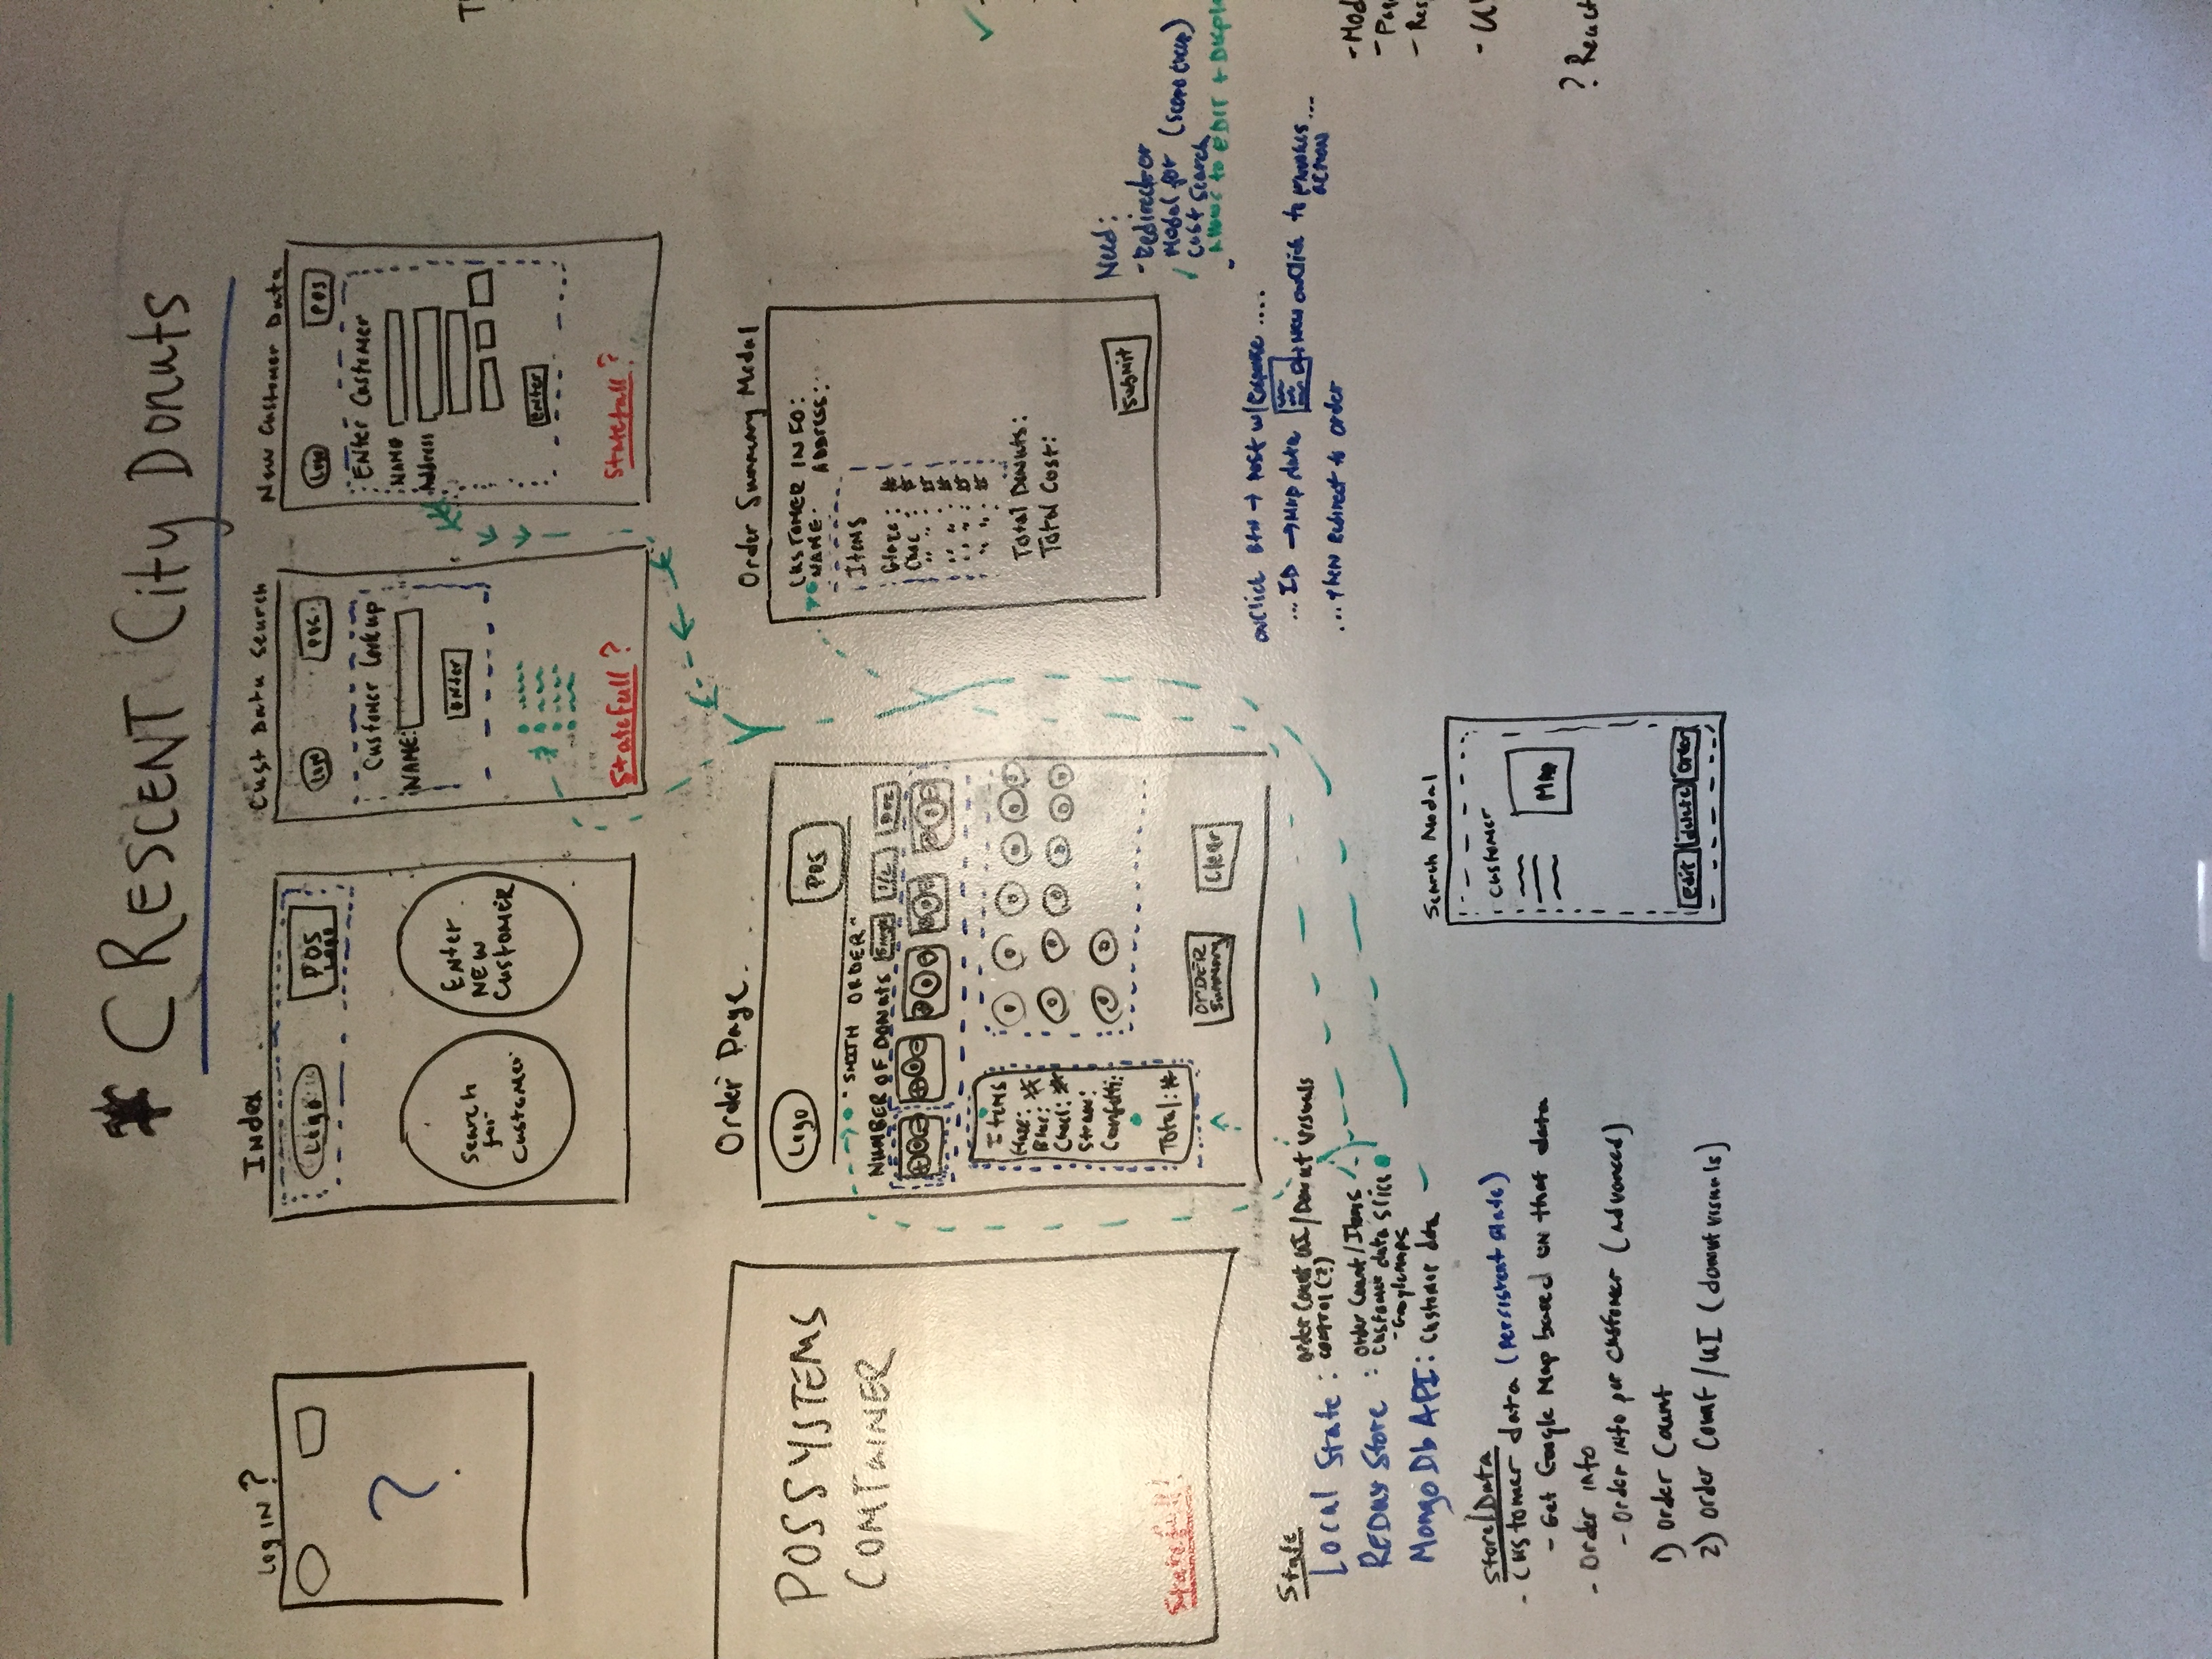 CRESCENT City Donuts
Log IN?
?
Index
Logo
POS
LOGO
Search
for
Customer
Enter
NEW
CUSTOMER
Cust Data Search
Logo
POS
Customer Lookup
NAME:
Enter
Statefull?
New Customer Data
Logo
POS
Enter Customer
NAME
Address
Enter
Statefull?
POSSYSTEMS
CONTAINER
Statefull!
Order Page
Logo
POS
"SMITH ORDER"
NUMBER OF DONUTS
1/2
Doz
Items
Blue: #
Choc: #
Straw:
Confetti:
Total: #
ORDER
Summary
Clear
Order Summary Modal
CUSTOMER INFO:
NAME: ADDRESS:
Items
Glaze: #
Choc : #
" " : #
" " : #
" " : #
" " : #
Total Donuts:
Total Cost:
Submit
Need:
- Redirect or
Modal for
Cust Search
Allows to EDIT +
onClick BTN → POST w/Response ....
... ID → Map data → New onClick to
action
... then Redirect to order
State
Local State : Order Count UI/Donut Visuals
control(?)
REDux Store : Order Count/Items
Customer data slice
- GoogleMaps
MongoDb API: Customer data
Store/Data
- Customer data (Persistent State)
- Get Google Map based on that data
- Order info
- Order info per Customer (Advanced)
1) Order Count
2) Order Count/UI (donut visuals)
Search Modal
Customer
Map
Edit
delete
Order
? React